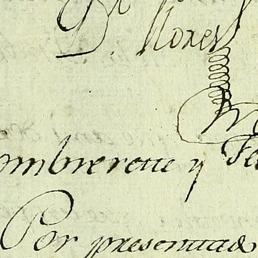 Dn Flores
ombrerete y Fe
Por presentada